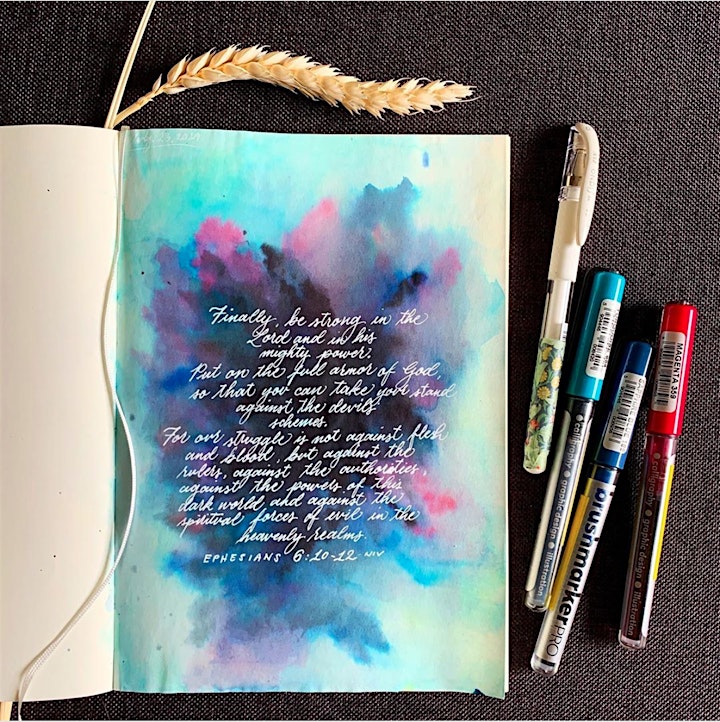 Finally, be strong in the
Lord and in his
mighty power.
Put on the full armor of God,
so that you can take your stand
against the devil's
schemes.
For our struggle is not against flesh
and blood, but against the
rulers, against the authorities,
against the powers of this
dark world and against the
spiritual forces of evil in the
heavenly realms.
EPHESIANS 6:10-12 NIV
calligraphy ● graphic design ● illustration
brushmarkerPRO
MAGENTA 359
calligraphy ● graphic design ● illustration